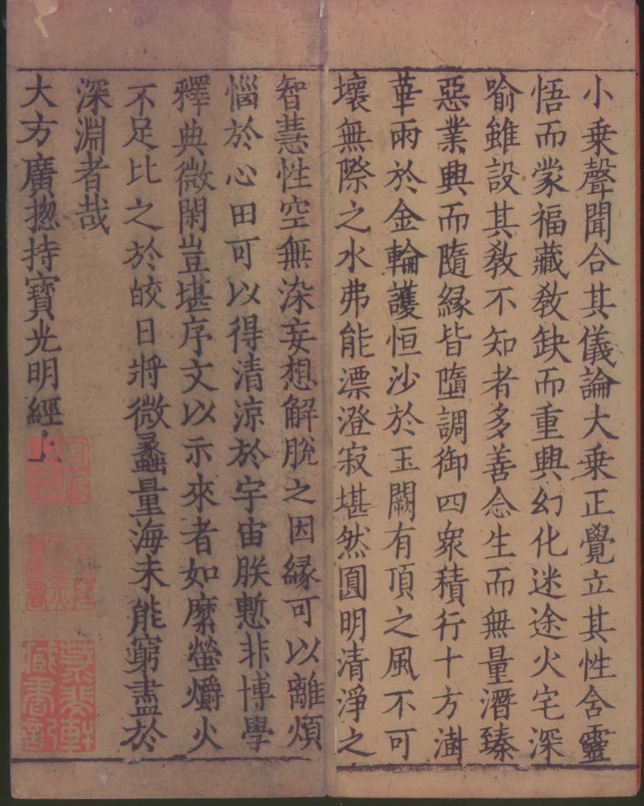 小乗聲聞合其儀論大乗正覺立其性含靈
悟而蒙福藏教缺而重興幻化迷途火宅深
喻雖設其教不知者多善念生而無量潛臻
惡業興而隨緣皆墮調御四衆積行十方澍
華雨於金輪護恒沙於玉闕有頂之風不可
壞無際之水弗能漂澄寂堪然圓明清淨之
智慧性空無染妄想解脫之因緣可以離煩
惱於心田可以得清涼於宇宙朕慙非博學
釋典微閑豈堪序文以示來者如縻螢爝火
不足比之於皎日將微蠡量海未能窮盡於
深淵者哉
大方廣揔持寶光明經